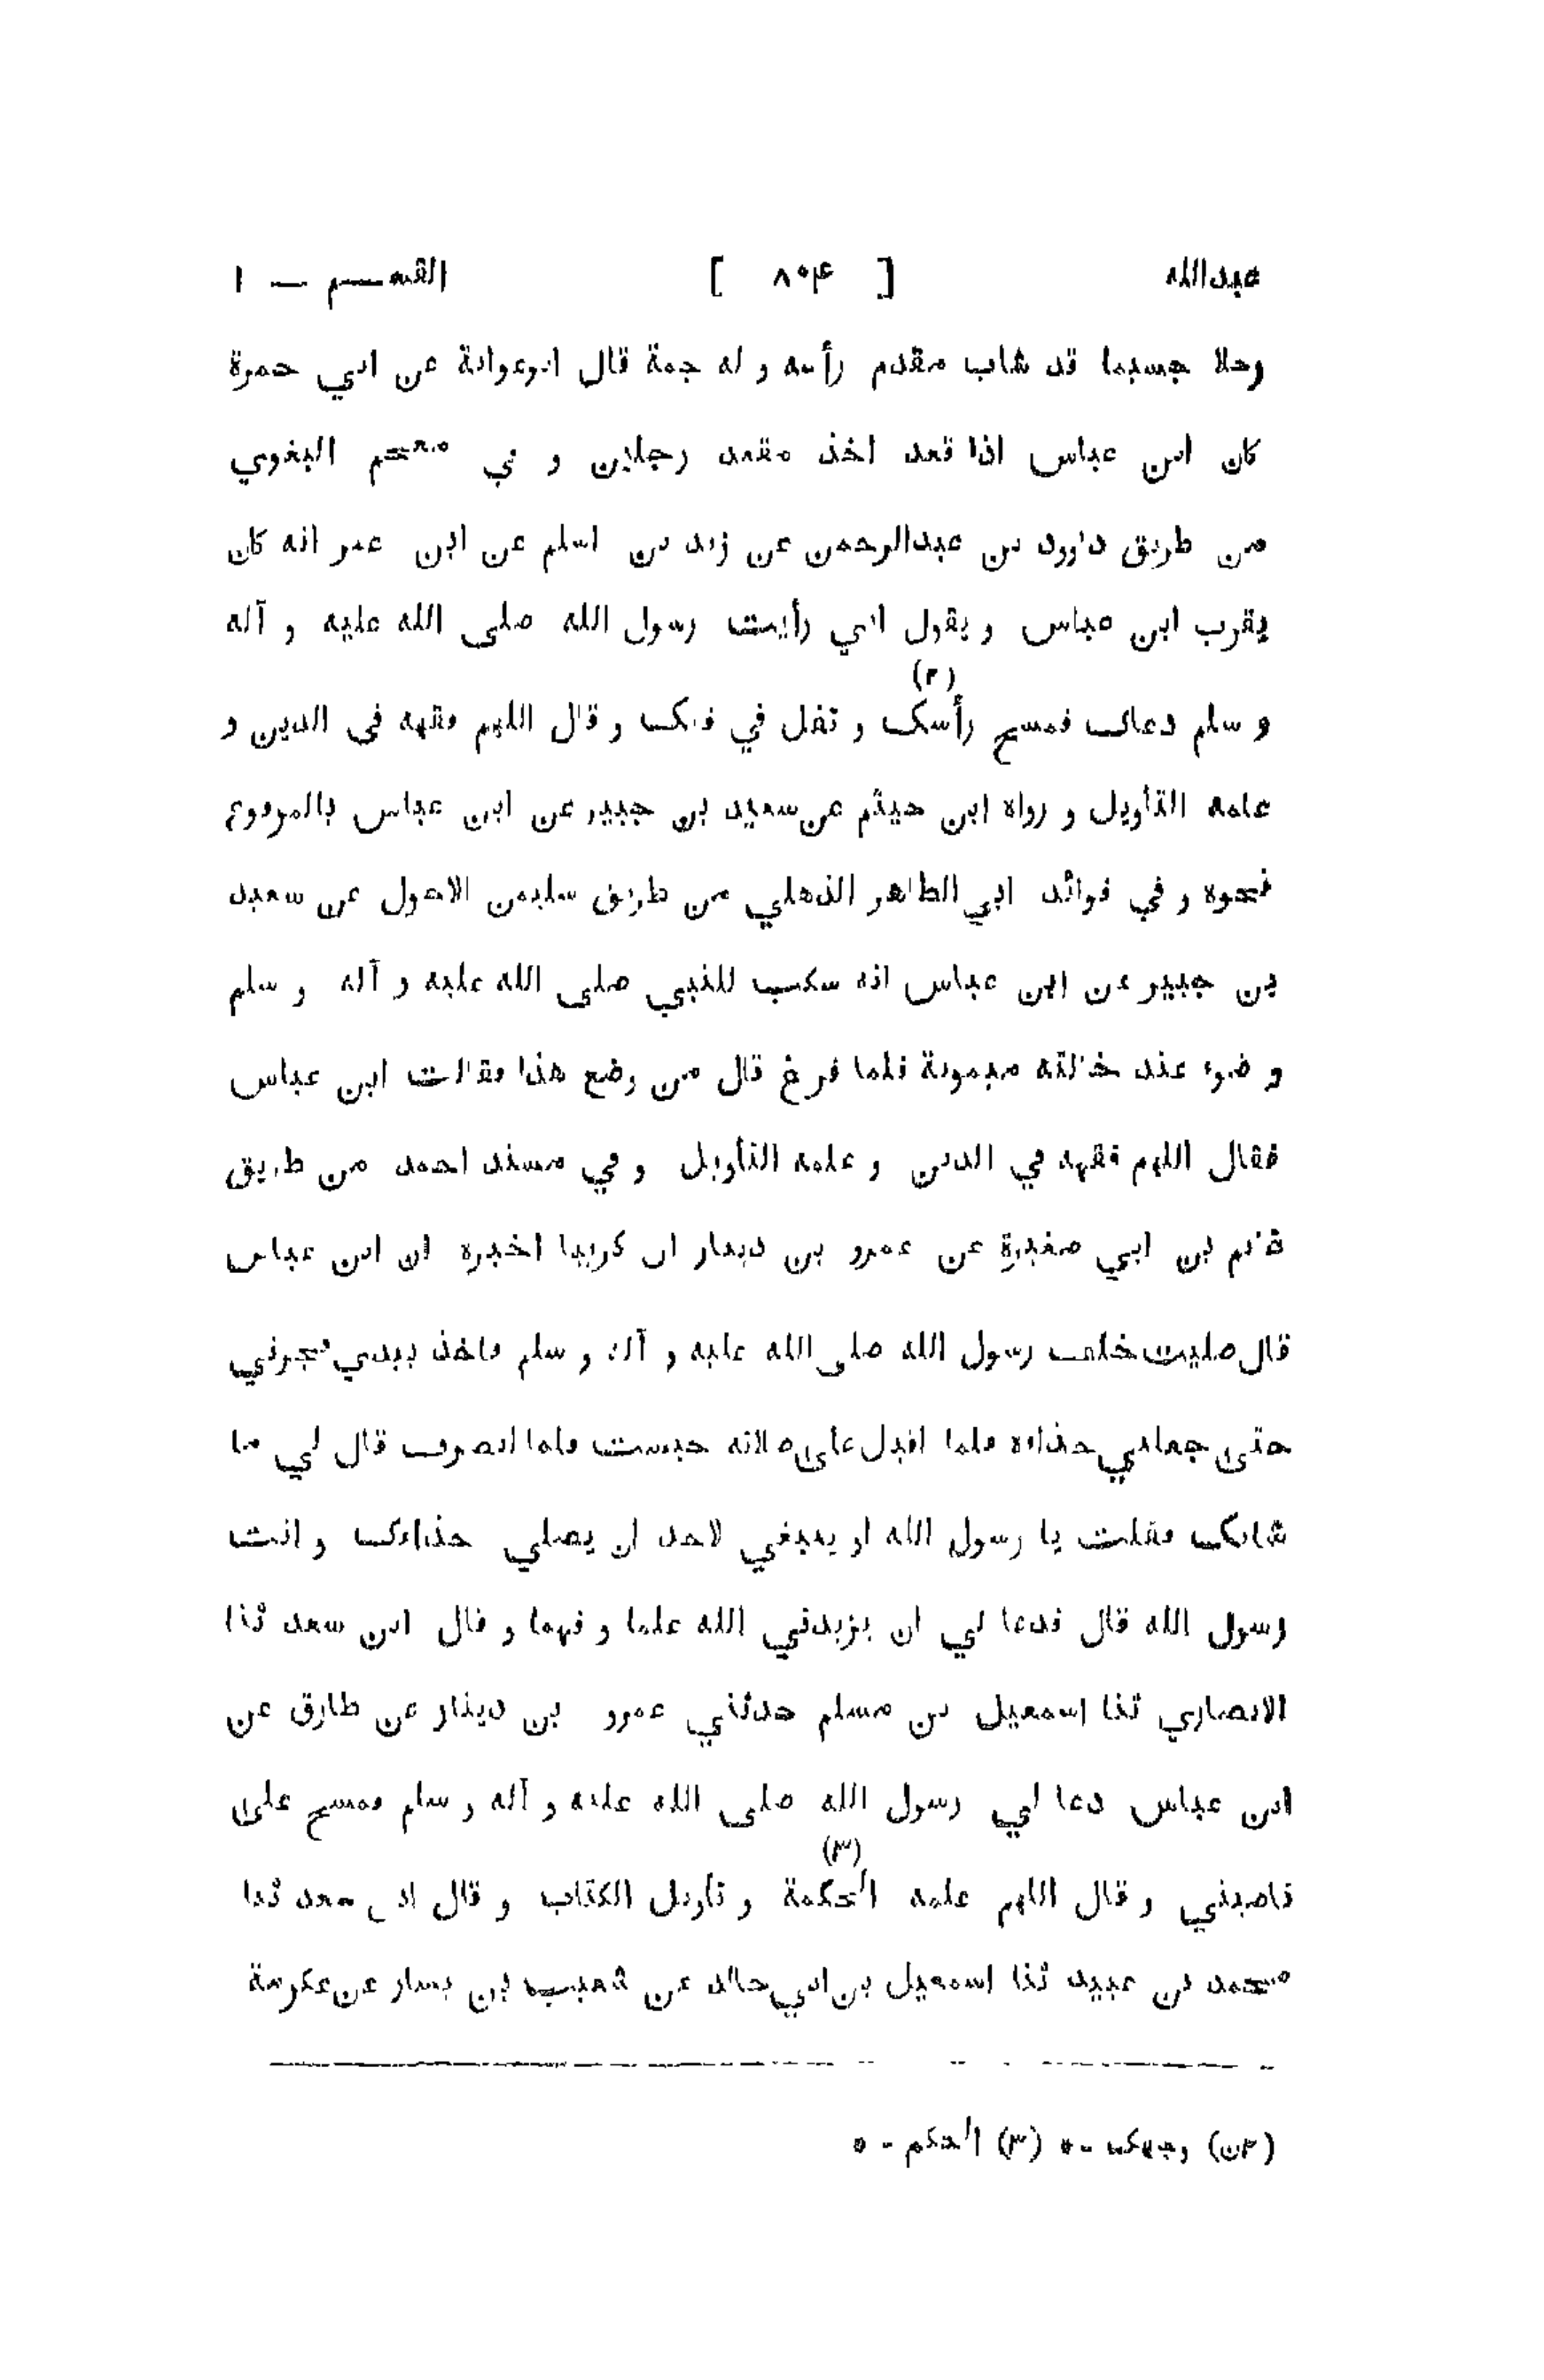 عبدالله [ ٨٠۴ ] القسم — ١
رجلا جسيما قد شاب مقدم رأسه و له جمة قال ابوعوانة عن ابي حمزة
كان ابن عباس اذا قعد اخذ مقعد رجلين و في معجم البغوي
من طريق داوود بن عبدالرحمن عن زيد بن اسلم عن ابن عمر انه كان
يقرب ابن عباس و يقول اني رأيت رسول الله صلى الله عليه و آله
و سلم دعاك فمسح رأسك (٢) و تفل في فيك و قال اللهم فقهه في الدين و
علمه التأويل و رواه ابن خيثم عن سعيد بن جبير عن ابن عباس بالمرفوع
نحوه و في فوائد ابي الطاهر الذهلي من طريق سليمن الاحول عن سعيد
بن جبير عن ابن عباس انه سكب للنبي صلى الله عليه و آله و سلم
و ضوء عند خالته ميمونة فلما فرغ قال من وضع هذا فقالت ابن عباس
فقال اللهم فقهه في الدين و علمه التأويل و في مسند احمد من طريق
حاتم بن ابي صغيرة عن عمرو بن دينار ان كريبا اخبره ان ابن عباس
قال صليت خلف رسول الله صلى الله عليه و آله و سلم فاخذ بيدي فجرني
حتى جعلني حذاءه فلما اقبل على صلاته خنست فلما انصرف قال لي ما
شانك فقلت يا رسول الله او ينبغي لاحد ان يصلي حذاءك و انت
رسول الله قال فدعا لي ان يزيدني الله علما و فهما و قال ابن سعد ثنا
الانصاري ثنا اسمعيل بن مسلم حدثني عمرو بن دينار عن طارق عن
ابن عباس دعا لي رسول الله صلى الله عليه و آله و سلم فمسح على
ناصيتي و قال اللهم علمه الحكمة (٣) و تأويل الكتاب و قال ابن سعد ثنا
محمد بن عبيد ثنا اسمعيل بن ابي خالد عن شعيب بن يسار عن عكرمة
(٢ن) وجهك -* (٣) الحكم - *